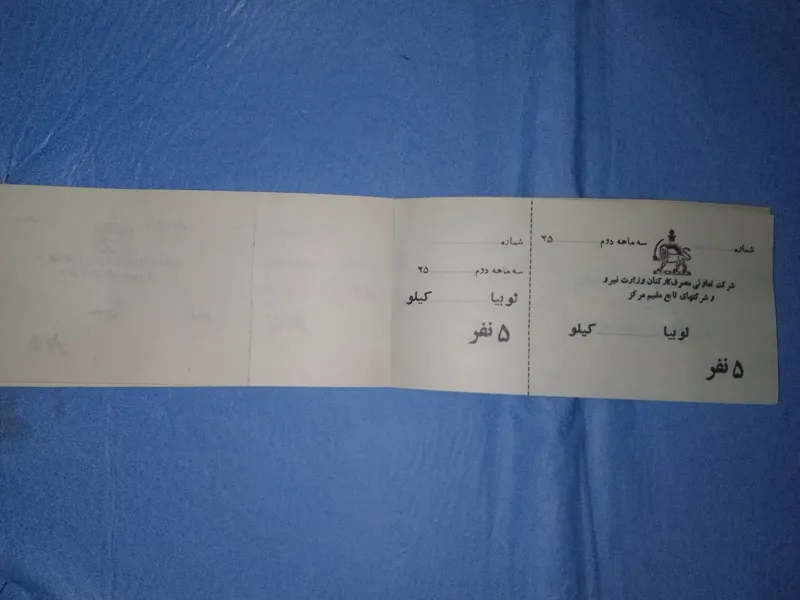 شماره ............ سه ماهه دوم ............ ۲۵
شرکت تعاونی مصرف کارکنان وزارت نیرو
و شرکتهای تابع مقیم مرکز
لوبیا ............ کیلو
۵ نفر
شماره ............
سه ماهه دوم ............ ۲۵
لوبیا ............ کیلو
۵ نفر